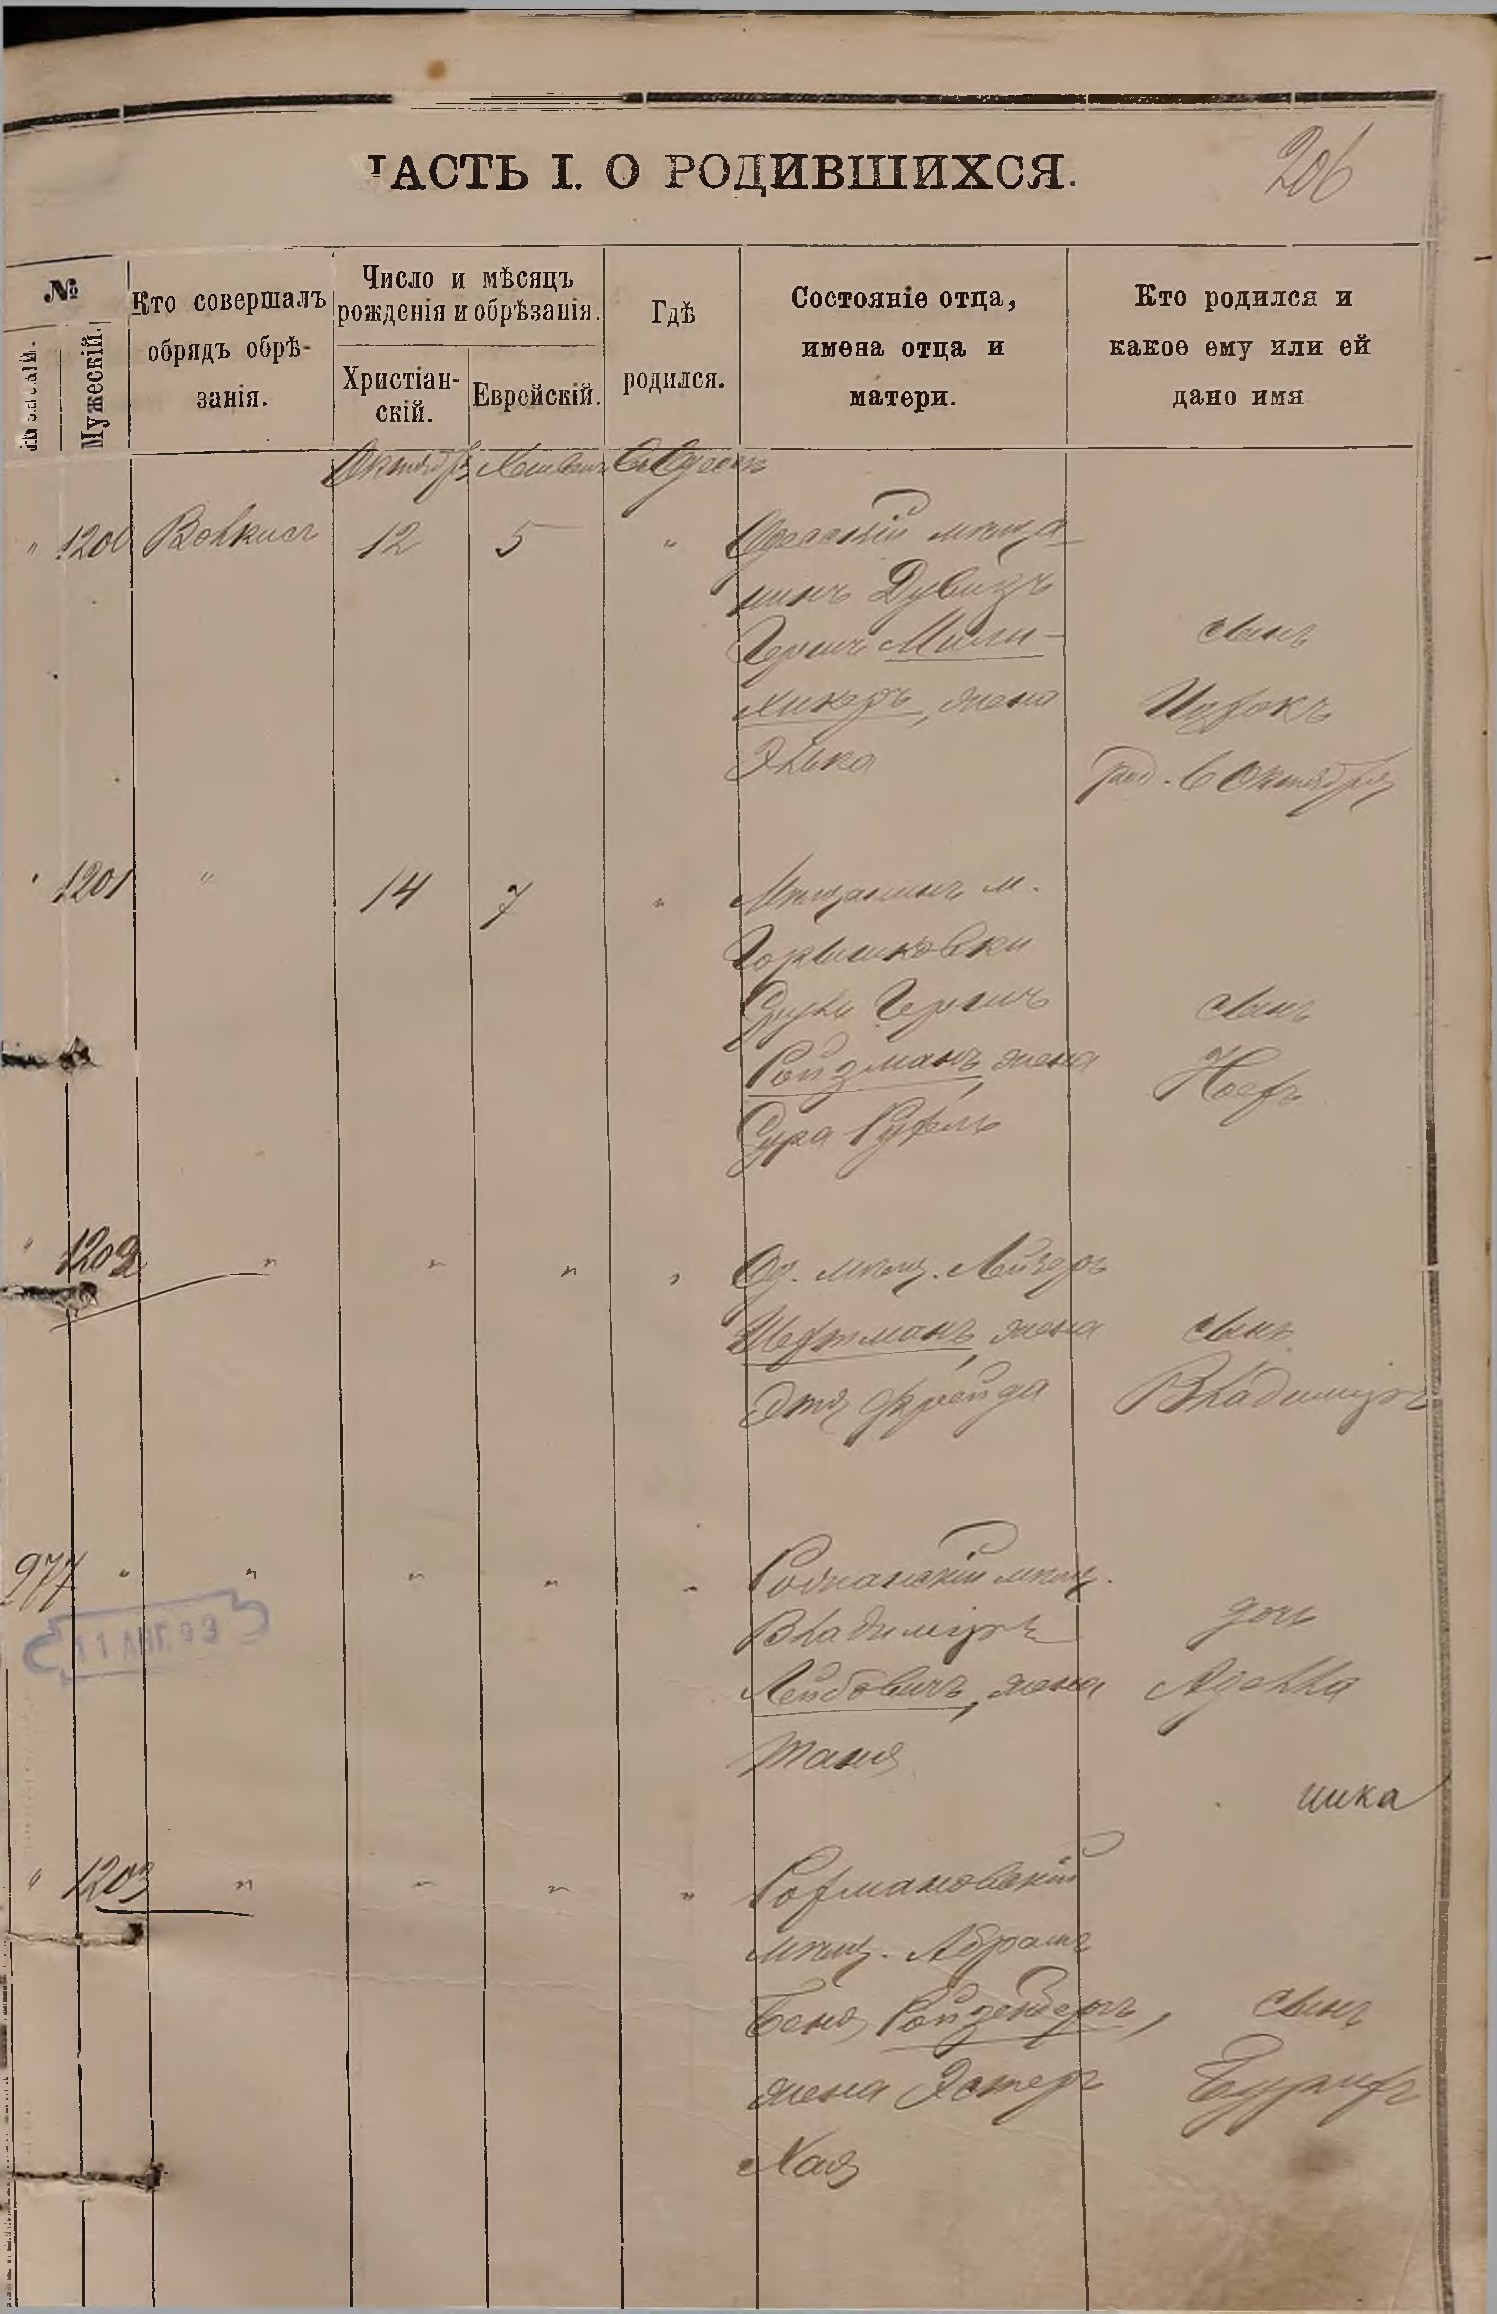 ЧАСТЬ I. О РОДИВШИХСЯ.
206
№
Женскій.
Мужескій.
Кто совершалъ
обрядъ обрѣ-
занія.
Число и мѣсяцъ
рожденія и обрѣзанія.
Христіан-
скій.
Еврейскій.
Гдѣ
родился.
Состояніе отца,
имена отца и
матери.
Кто родился и
какое ему или ей
дано имя
Октябрь Хешванъ Въ Одессѣ
" 1200 Волкисъ 12 5 "
Одесскій мѣща-
нинъ Дувидъ
Гершъ Мили-
хикеръ, жена
Элька
сынъ
Ицхокъ
род. 6 Октября
" 1201 " 14 7 "
Мѣщанинъ м.
Горышковки
Сруль Гершъ
Ройзманъ, жена
Сура Рухль
сынъ
" 1202 " " " "
Од. мѣщ. Лейзеръ
жена
Этя Фрейда
сынъ
Владимиръ
977 " " " " "
11 АВГ. 93
мѣщ.
Владимиръ
Лейбовичъ, жена
Таня
дочь
Аделла
ника
" 1203 " " " "
Рохмановскій
мѣщ. Абрамъ
Беня Ройзенбергъ,
жена Эстеръ
Хая
сынъ
Бурихъ